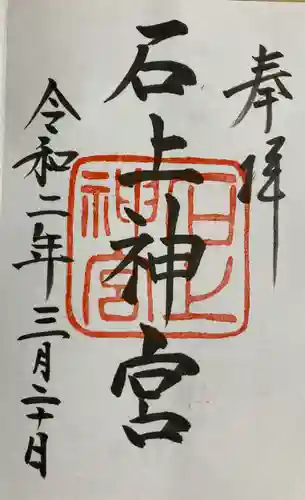 奉拝
石上神宮
石上神宮
令和二年三月二十日